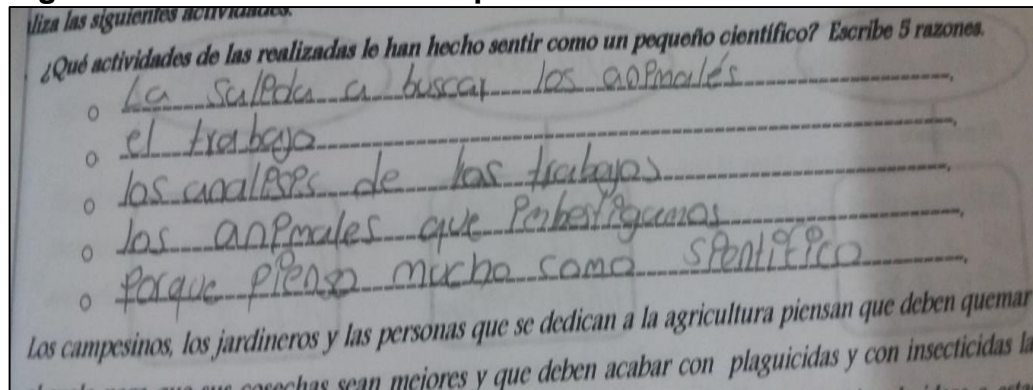 aliza las siguientes actividades.
¿Qué actividades de las realizadas le han hecho sentir como un pequeño científico? Escribe 5 razones.
La salida a buscar los animales
el trabajo
los analises de los trabajos
los animales que inbestigamos
porque pienso mucho como sientifico
Los campesinos, los jardineros y las personas que se dedican a la agricultura piensan que deben quemar
que sus cosechas sean mejores y que deben acabar con plaguicidas y con insecticidas la